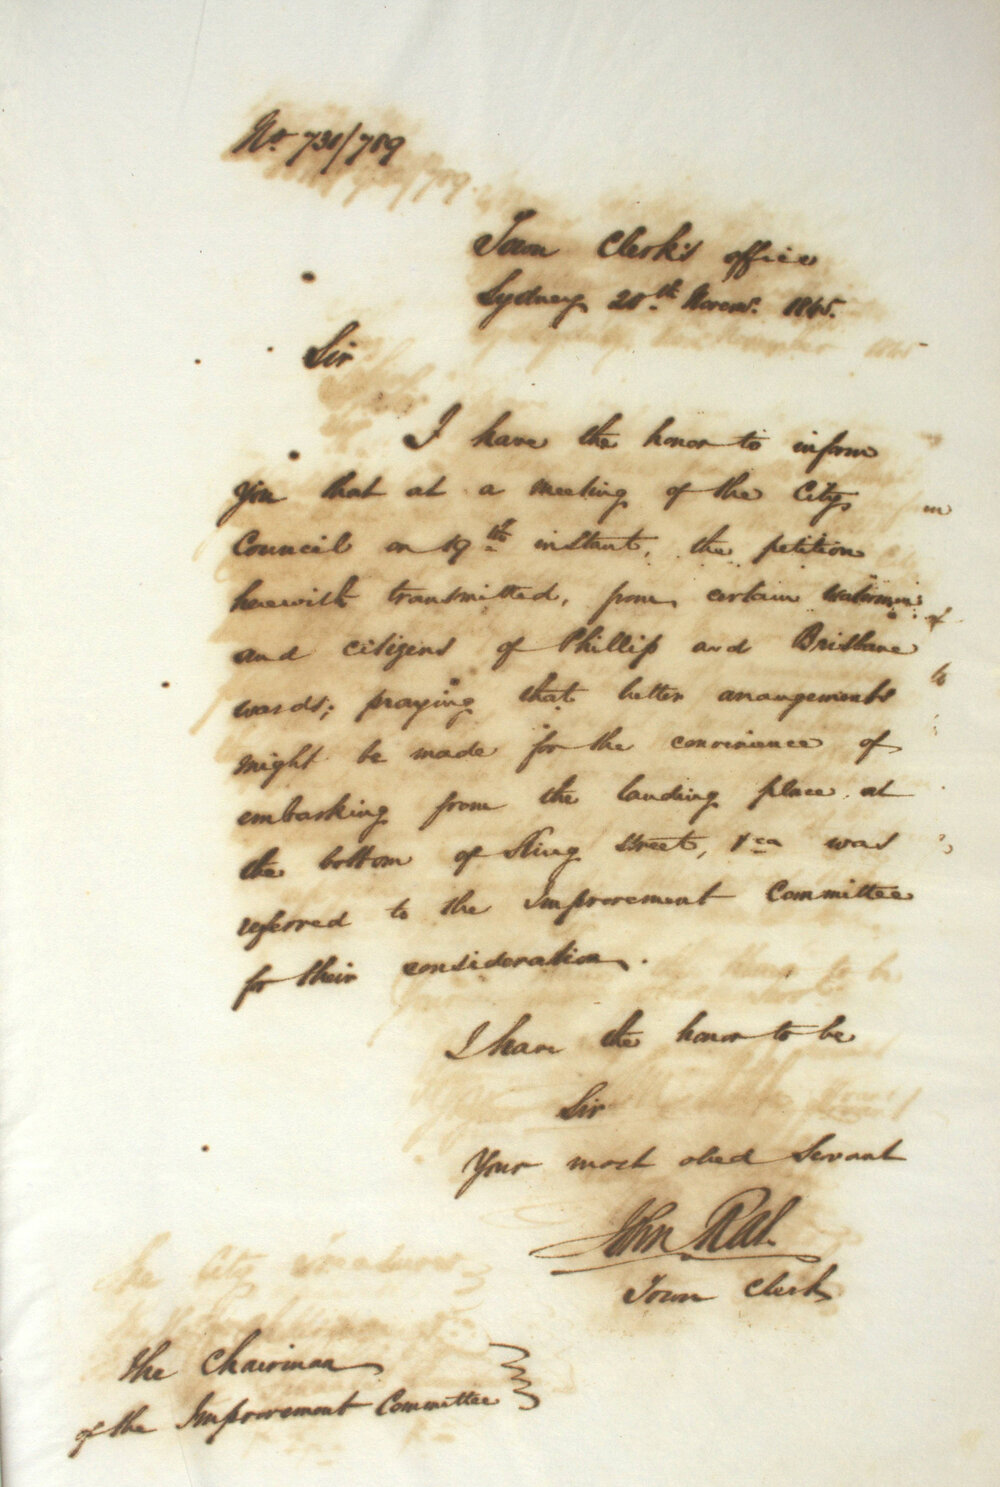 No. 730/789
Town Clerk's office
Sydney 20th Novemr. 1865.
Sir
I have the honor to inform
you that at a meeting of the City
Council on 19th instant, the petition
herewith transmitted, from certain Watermen
and citizens of Phillip and Brisbane
wards; praying that better arrangements
might be made for the convenience of
embarking from the landing place at
the bottom of King Street, &ca was
referred to the Improvement Committee
for their consideration.
I have the honor to be
Sir
Your most obed Servant
John Rae
Town Clerk
The Chairman
of the Improvement Committee